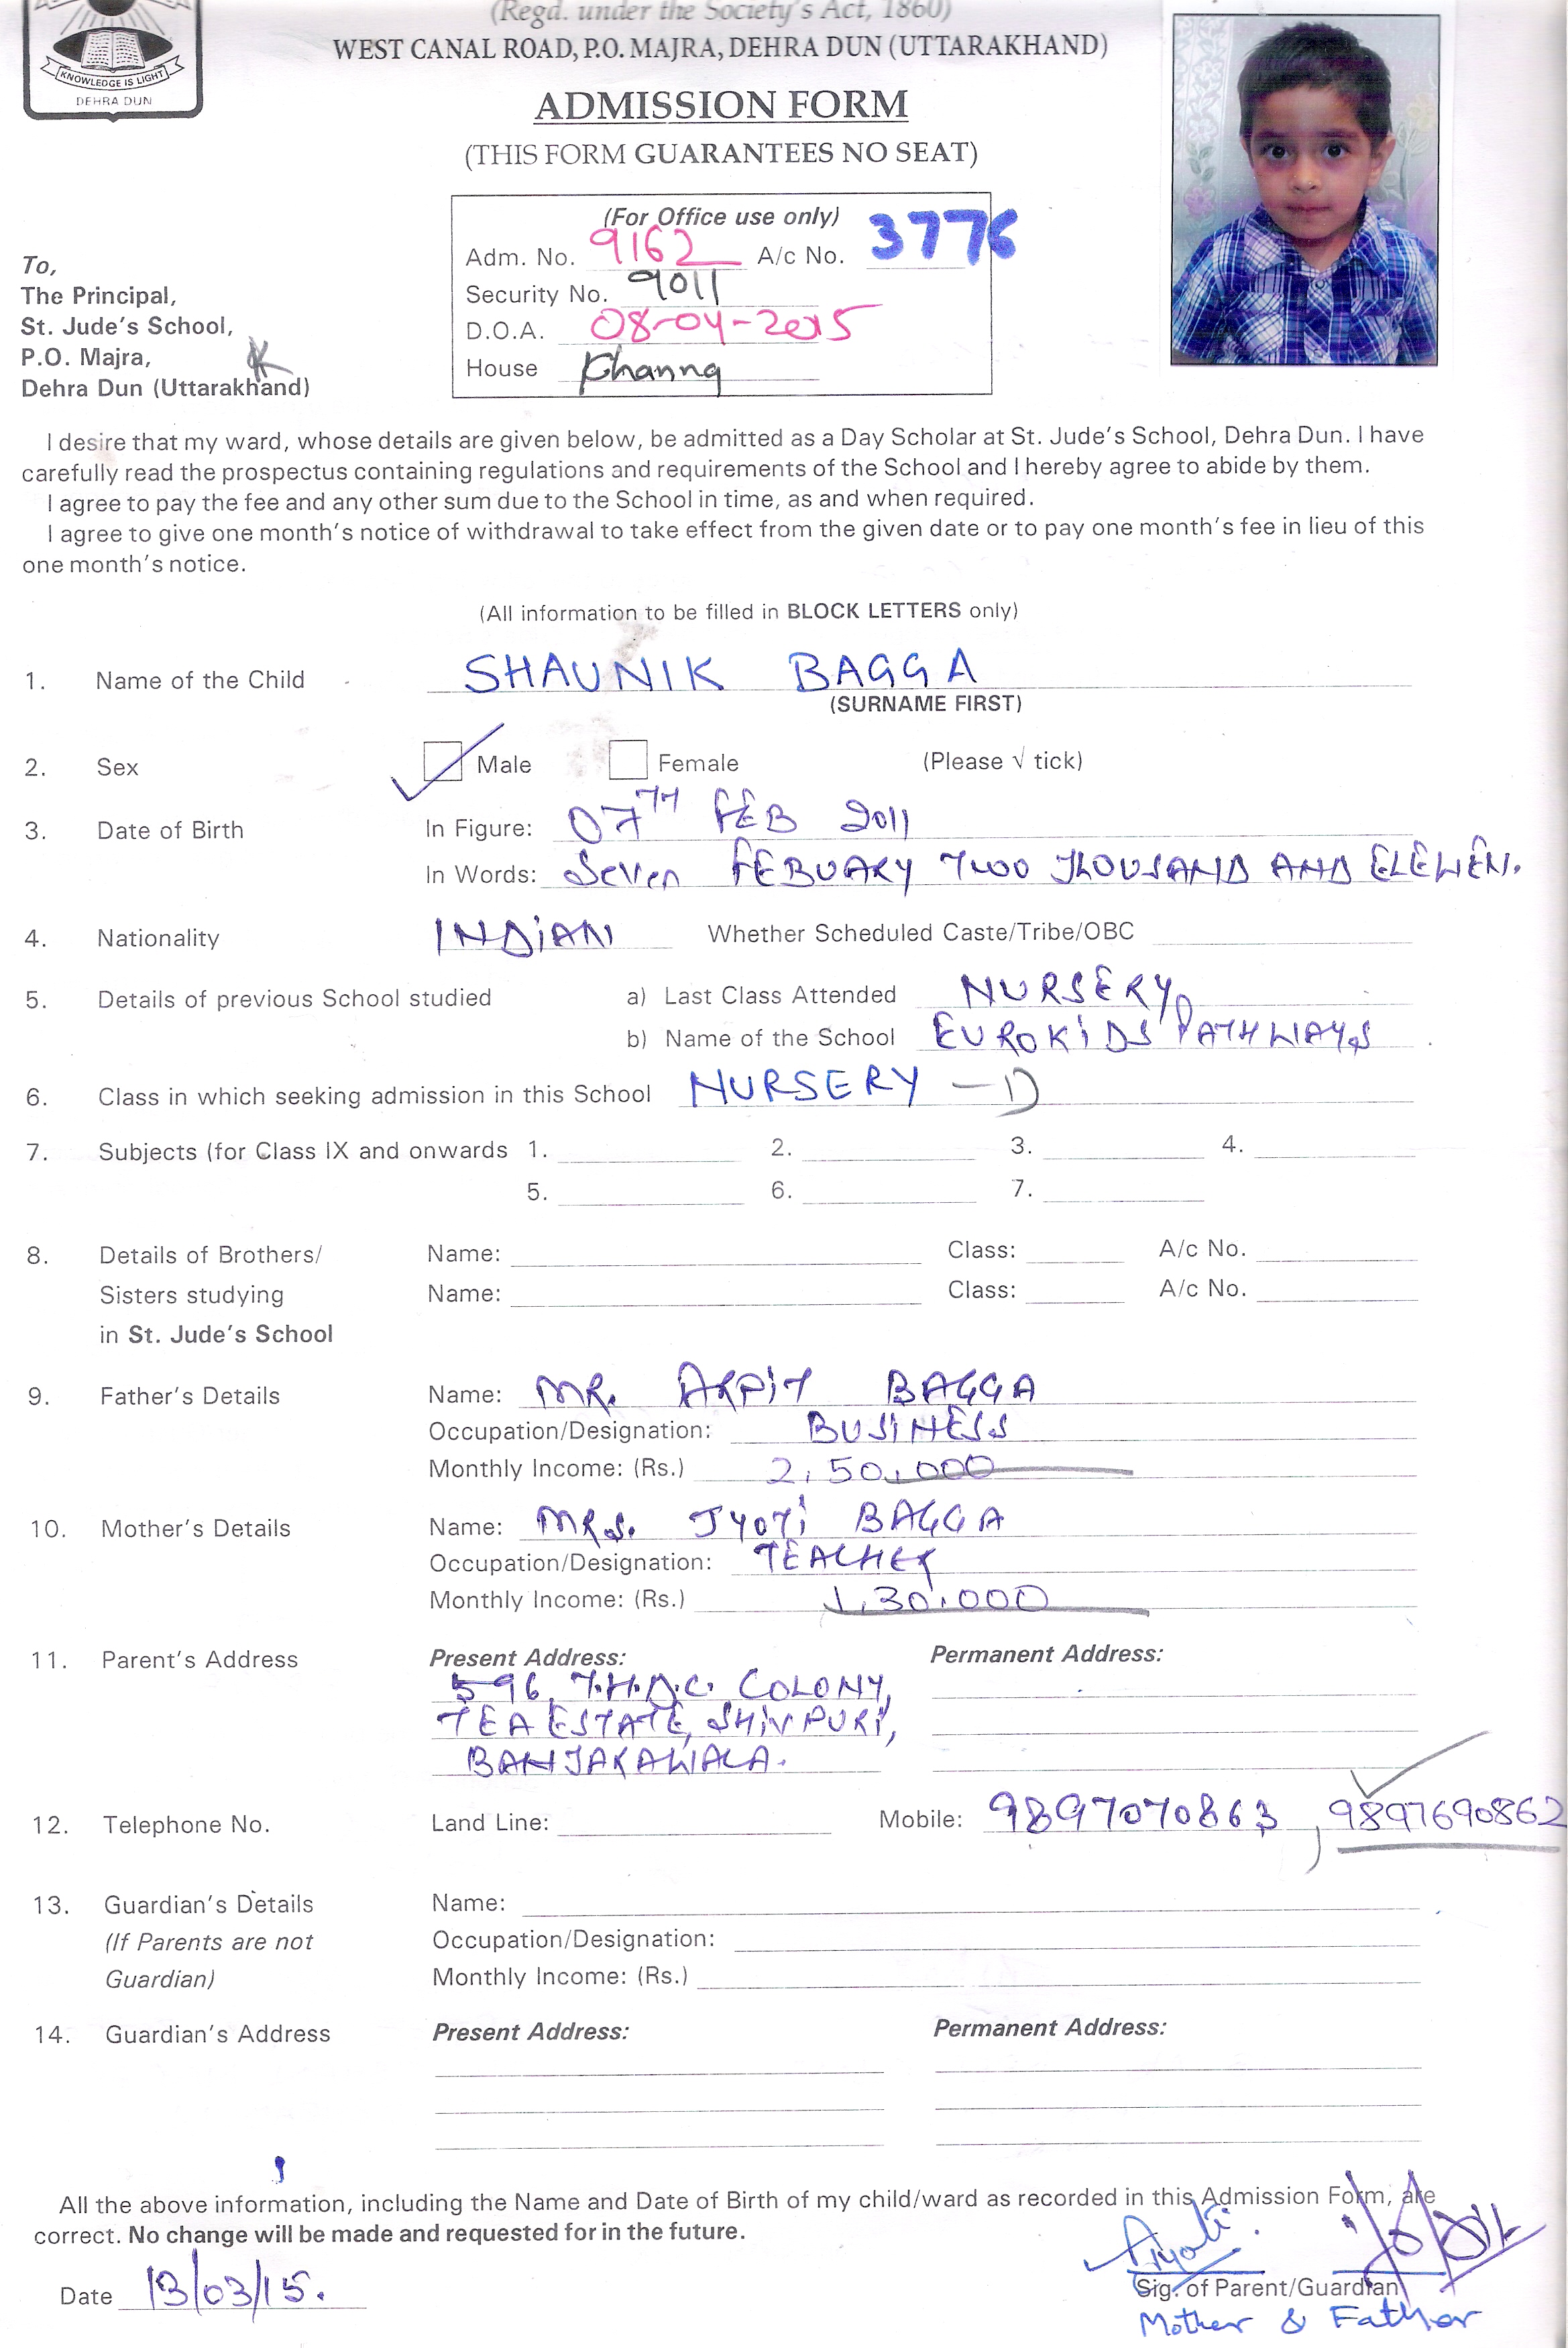 (Regd. under the Society's Act, 1860)
WEST CANAL ROAD, P.O. MAJRA, DEHRA DUN (UTTARAKHAND)
KNOWLEDGE IS LIGHT
DEHRA DUN
ADMISSION FORM
(THIS FORM GUARANTEES NO SEAT)
(For Office use only)
Adm. No. 9162 A/c No. 3776
Security No. 9011
D.O.A. 08-04-2015
House Khanna
To,
The Principal,
St. Jude's School,
P.O. Majra,
Dehra Dun (Uttarakhand)
I desire that my ward, whose details are given below, be admitted as a Day Scholar at St. Jude's School, Dehra Dun. I have
carefully read the prospectus containing regulations and requirements of the School and I hereby agree to abide by them.
I agree to pay the fee and any other sum due to the School in time, as and when required.
I agree to give one month's notice of withdrawal to take effect from the given date or to pay one month's fee in lieu of this
one month's notice.
(All information to be filled in BLOCK LETTERS only)
1. Name of the Child SHAUNIK BAGGA
(SURNAME FIRST)
2. Sex Male Female (Please √ tick)
3. Date of Birth In Figure: 07TH FEB 2011
In Words: Seven FEBUARY TWOO THOUSAND AND ELEWEN.
4. Nationality INDIAN Whether Scheduled Caste/Tribe/OBC
5. Details of previous School studied a) Last Class Attended NURSERY
b) Name of the School EUROKIDS PATHWAYS
6. Class in which seeking admission in this School NURSERY - D
7. Subjects (for Class IX and onwards 1. 2. 3. 4.
5. 6. 7.
8. Details of Brothers/ Name: Class: A/c No.
Sisters studying Name: Class: A/c No.
in St. Jude's School
9. Father's Details Name: MR. ARPIT BAGGA
Occupation/Designation: BUSINESS
Monthly Income: (Rs.) 2,50,000
10. Mother's Details Name: MRS. JYOTI BAGGA
Occupation/Designation: TEACHER
Monthly Income: (Rs.) 1,30,000
11. Parent's Address Present Address: Permanent Address:
596, T.H.D.C. COLONY,
TEA ESTATE, SHIVPURI,
BANJARAWALA.
12. Telephone No. Land Line: Mobile: 9897070863, 9897690862
13. Guardian's Details Name:
(If Parents are not Occupation/Designation:
Guardian) Monthly Income: (Rs.)
14. Guardian's Address Present Address: Permanent Address:
All the above information, including the Name and Date of Birth of my child/ward as recorded in this Admission Form, are
correct. No change will be made and requested for in the future.
Jyoti.
Date 13/03/15.
Sig. of Parent/Guardian
Mother & Father